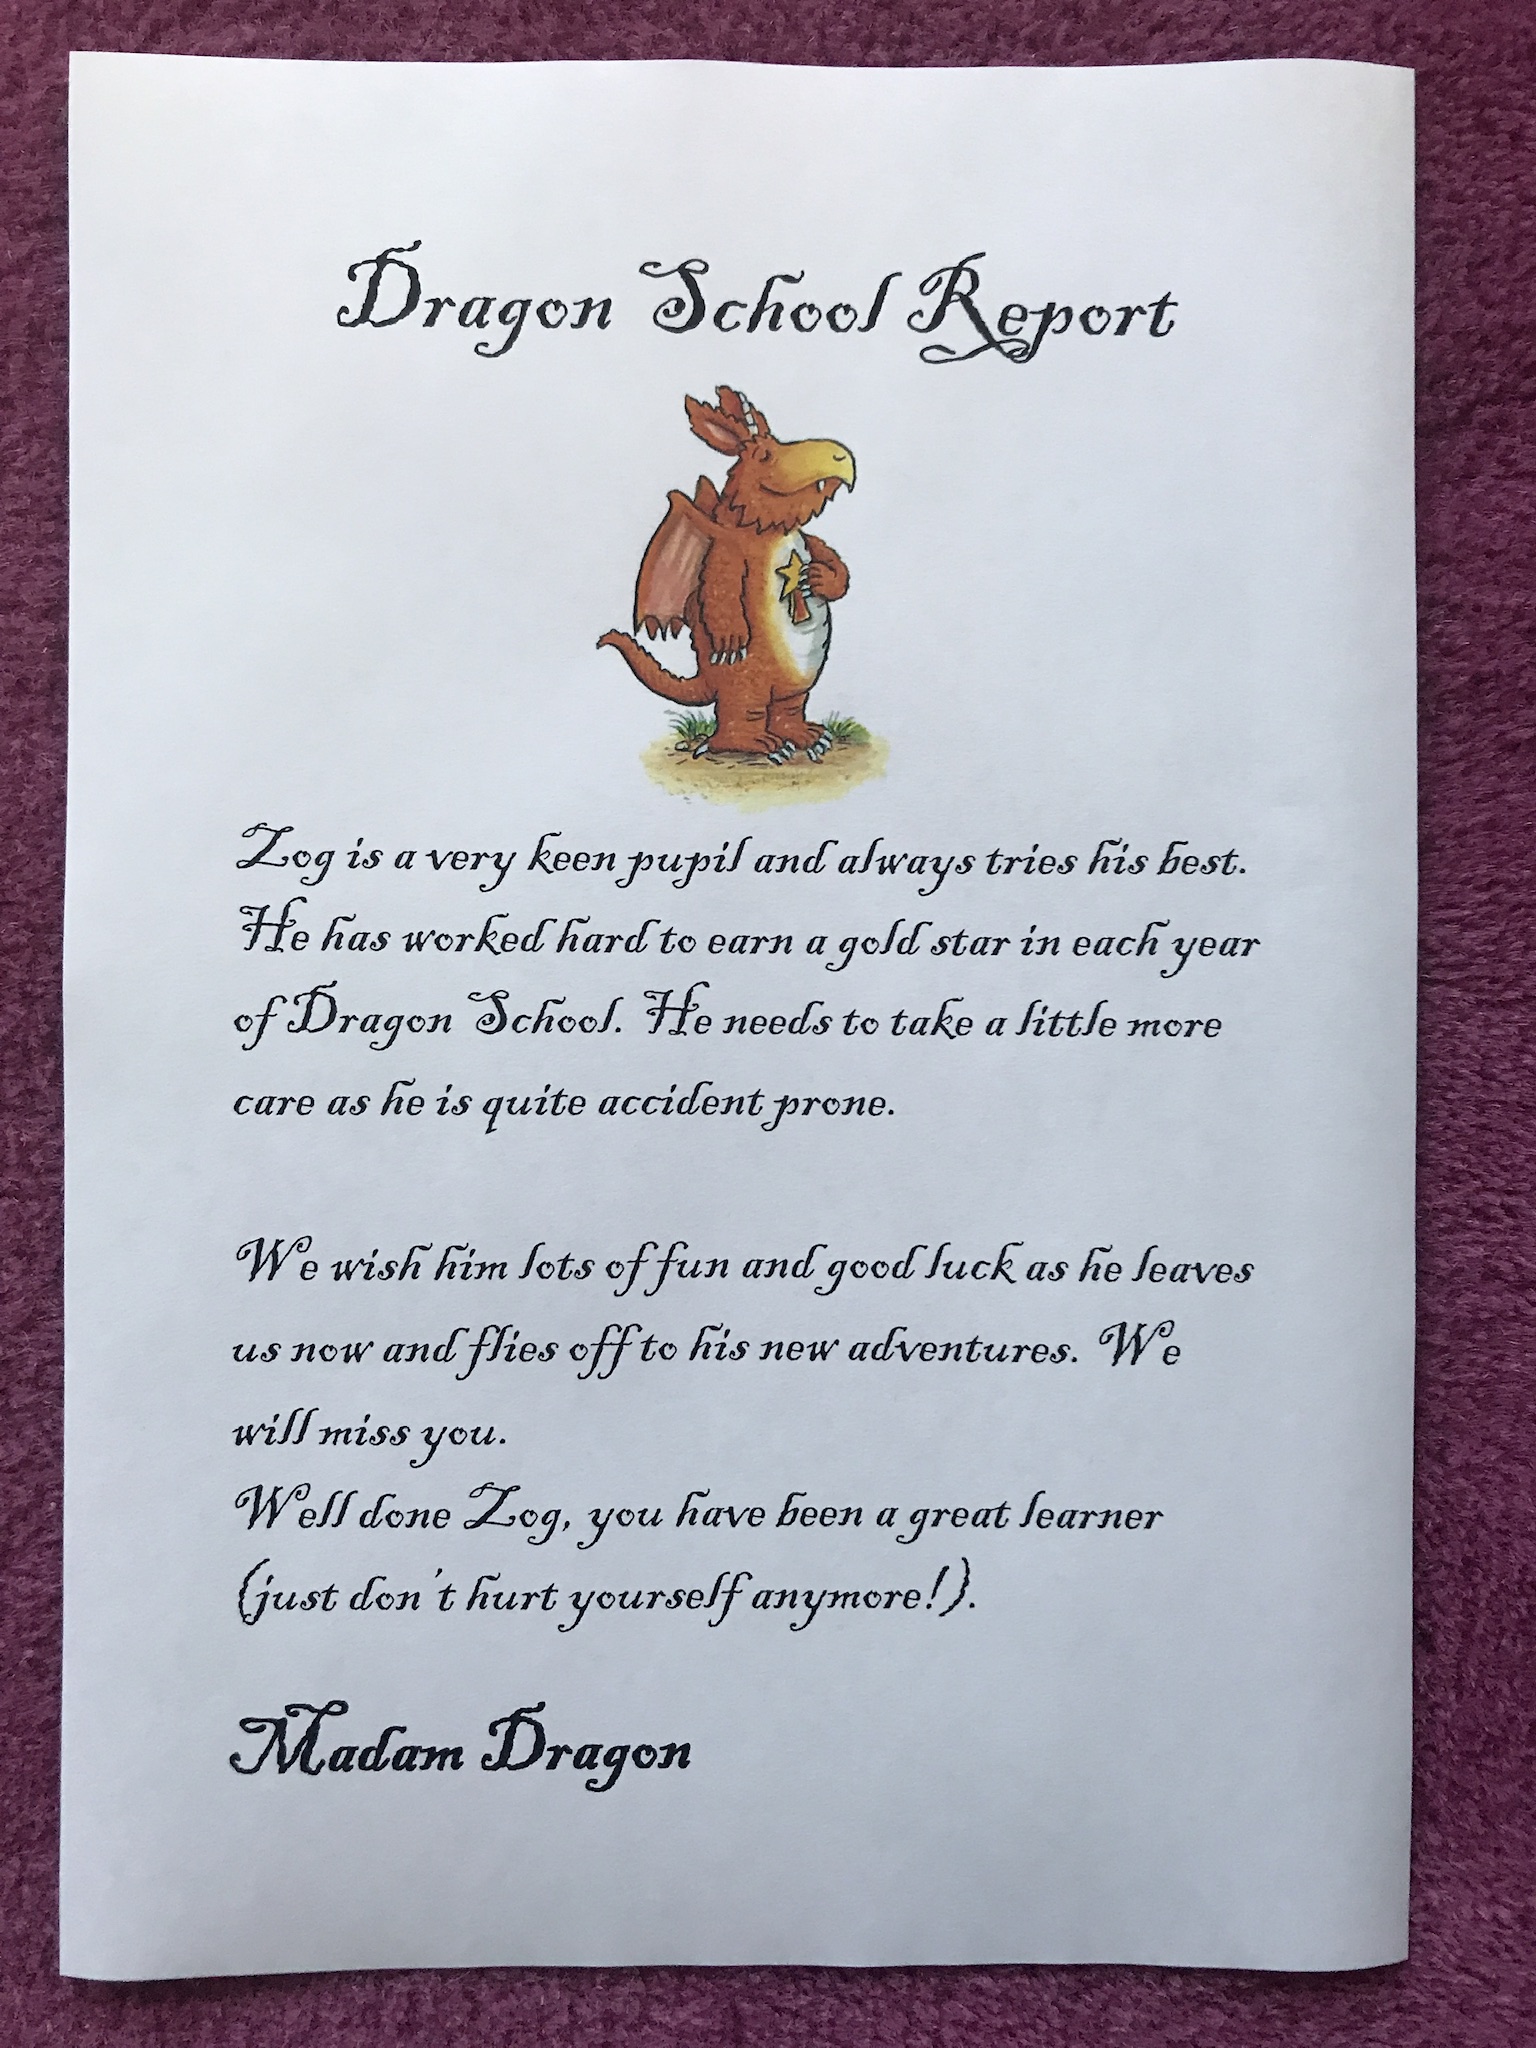 Dragon School Report
Zog is a very keen pupil and always tries his best.
He has worked hard to earn a gold star in each year
of Dragon School. He needs to take a little more
care as he is quite accident prone.
We wish him lots of fun and good luck as he leaves
us now and flies off to his new adventures. We
will miss you.
Well done Zog, you have been a great learner
(just don't hurt yourself anymore!).
Madam Dragon